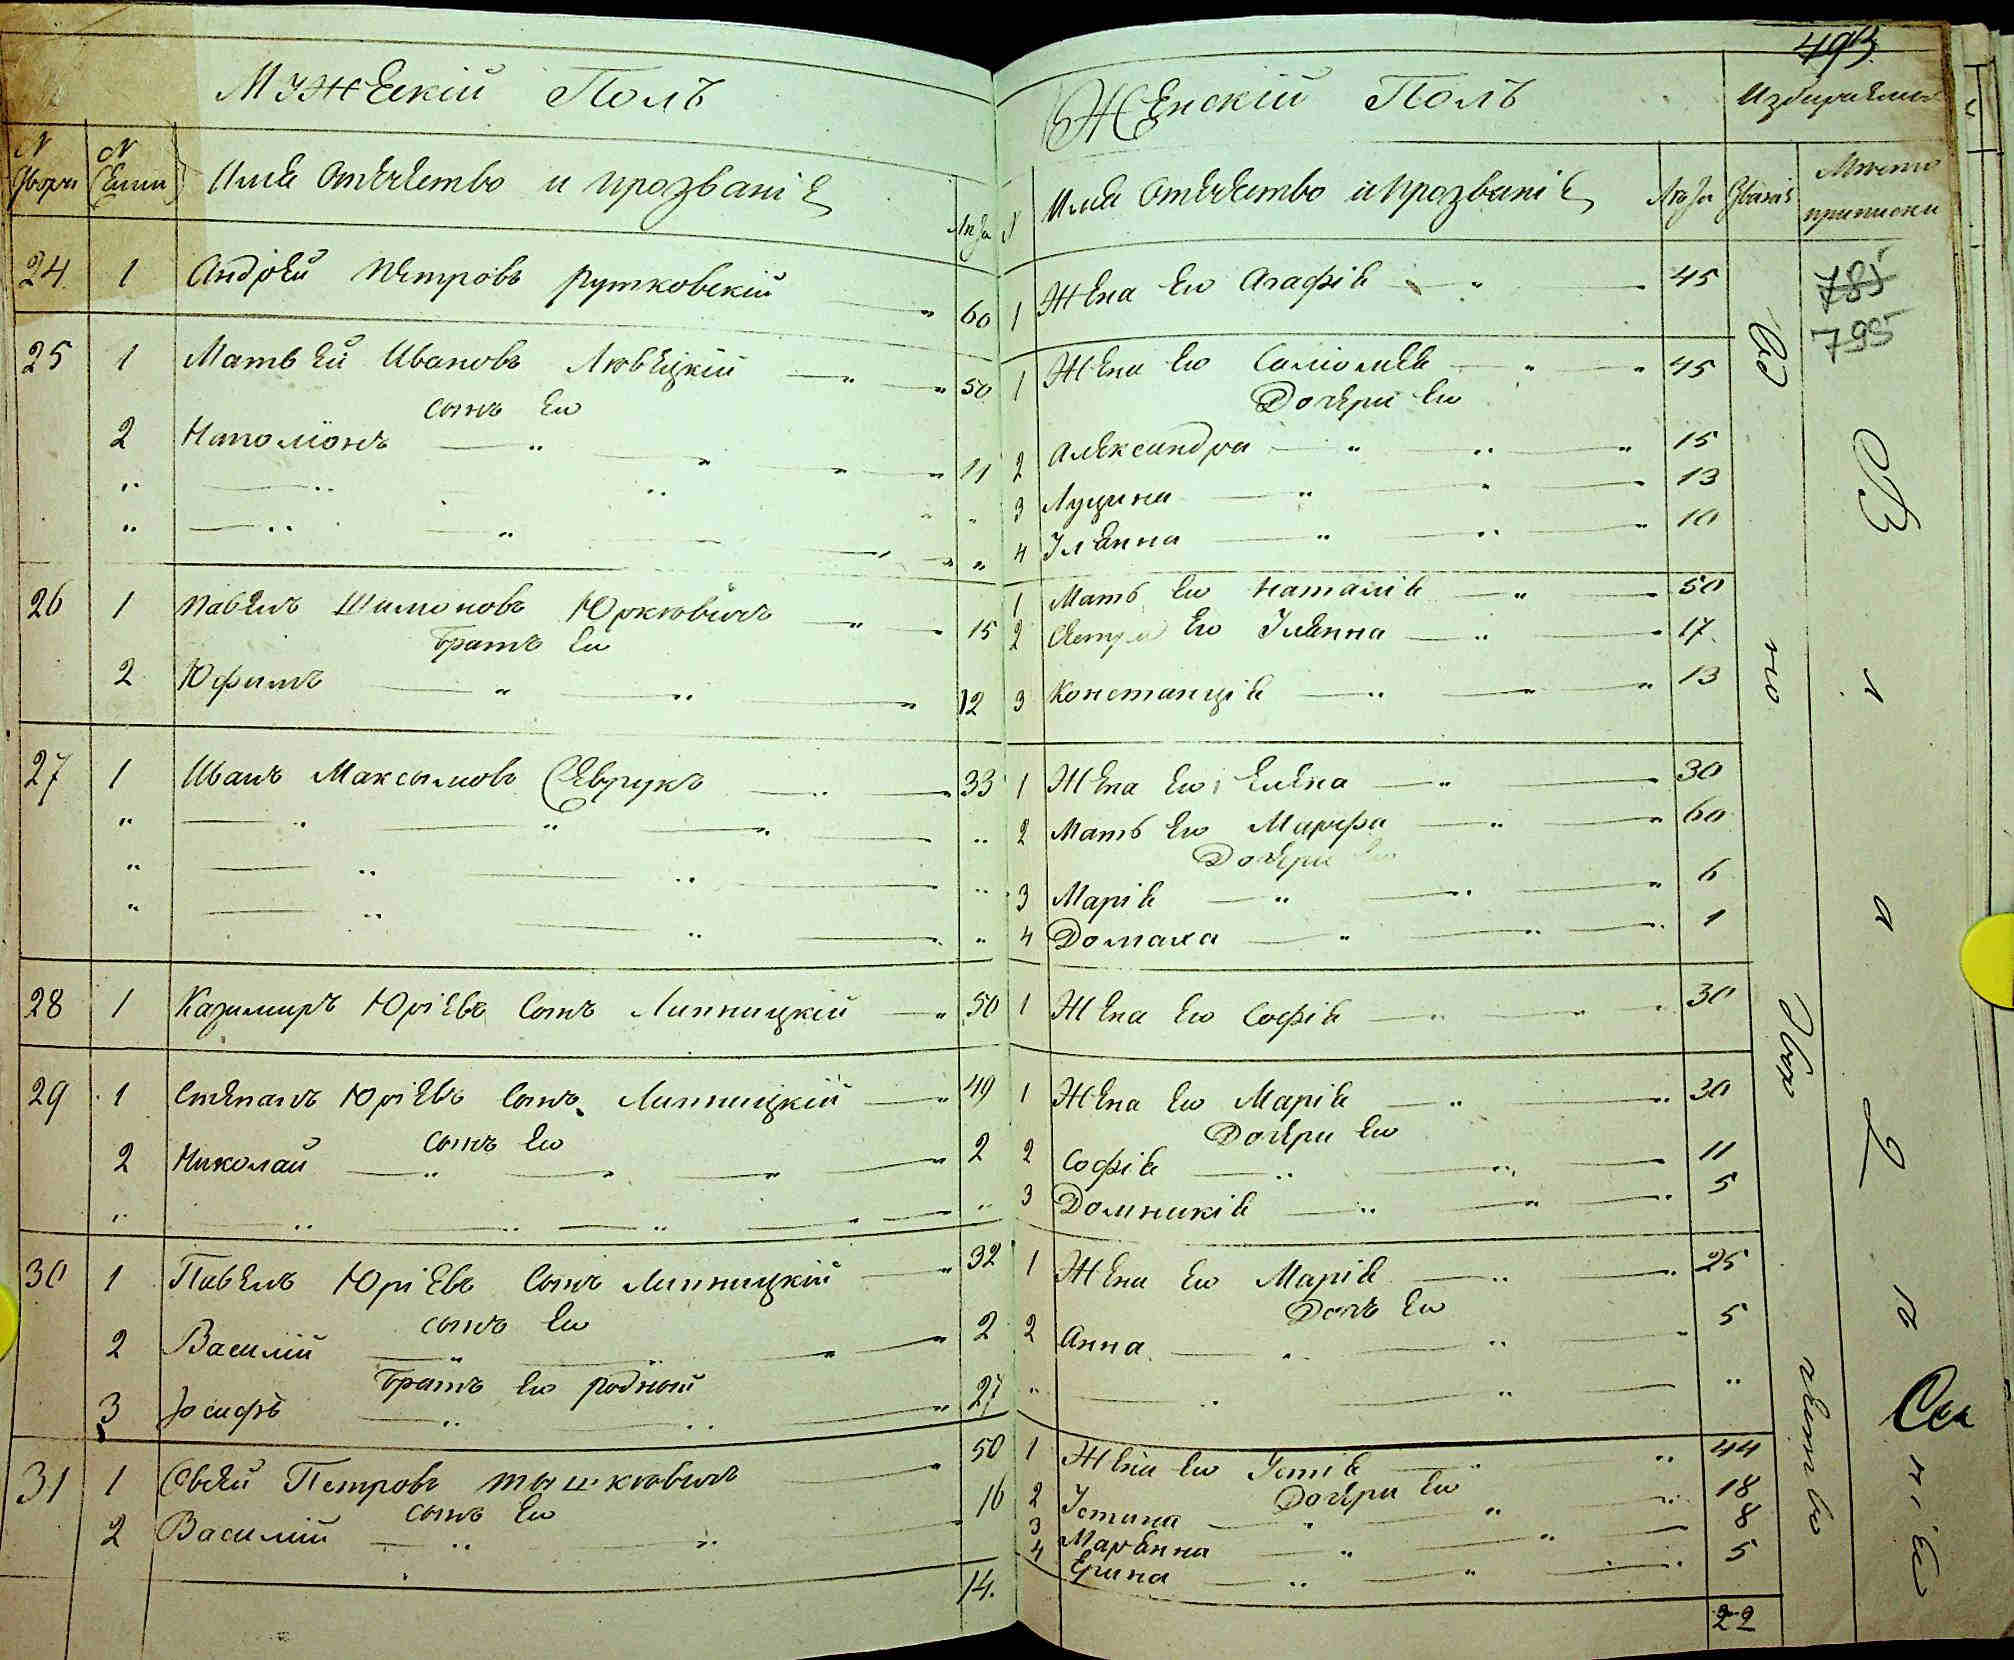 Мужескій Полъ
N двора
N Семи
Имя Отечество и прозваніе
Лѣта
24 1 Андрѣй Петровъ Рутковскій 60
25 1 Матвѣй Ивановъ Любѣцкій 50
сынъ Ею
2 Наполіонъ 11
26 1 Павелъ Шимоновъ Юркювичъ 15
братъ Ею
2 Юфимъ 12
27 1 Иванъ Максымовъ Севрукъ 33
28 1 Казимиръ Юріевъ Сынъ Липницкій 50
29 1 Степанъ Юріевъ Сынъ Липницкій 49
сынъ Ею
2 Николай 2
30 1 Павелъ Юріевъ Сынъ Липницкій 32
сынъ Ею
2 Василій 2
братъ Ею родный
3 Іосифъ 27
31 1 Овсѣй Петровъ Тышкювичъ 50
сынъ Ею
2 Василій 16
14.
493
Женскій Полъ
N
Имя Отечество и Прозваніе
Лѣта
Званія
Мѣсто приписки
1 Жена Ею Агафія 45
785
795
1 Жена Ею Саломея 45
Дочери Ею
2 Александра 15
3 Луцина 13
4 Улянна 10
1 Мать Ею Наталія 50
2 Сестра Ею Улянна 17
3 Констанція 13
1 Жена Ею Елена 30
2 Мать Ею Марфа 60
Дочери Ею
3 Марія 6
4 Домаха 1
1 Жена Ею Софія 30
1 Жена Ею Марія 30
Дочери Ею
2 Софія 11
3 Домникія 5
1 Жена Ею Марія 25
Дочь Ею
2 Анна 5
1 Жена Ею Устія 44
Дочери Ею
2 Устина 18
3 Марянна 8
4 Ерина 5
22